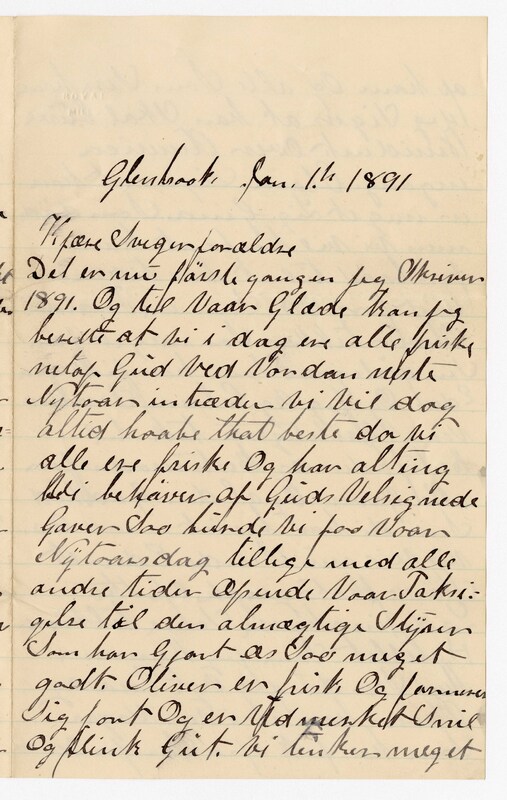 Glenbrook Jan. 1.th 1891
Kjære Svegerforældre
Det er nu første gangen jeg Skriver
1891. Og til Vaar Glæde kan jeg
berette at vi i dag ere alle friske
netop Gud Ved Vordan neste
Nytoar intræder vi vil dog
altid haabe that beste da vi
alle ere friske Og har alting
Vi behøver af Guds Velsignede
Gaver Saa burde vi paa Voar
Nytoarsdag tillige med alle
andre tider Opsende Vaar Taksi-
gelse til den almægtige Styrer
Som har Gjort os Saa meget
godt. Oliver er frisk Og
Sig fort Og er Udmerket Snil
Og flink Gut. Vi tenker meget